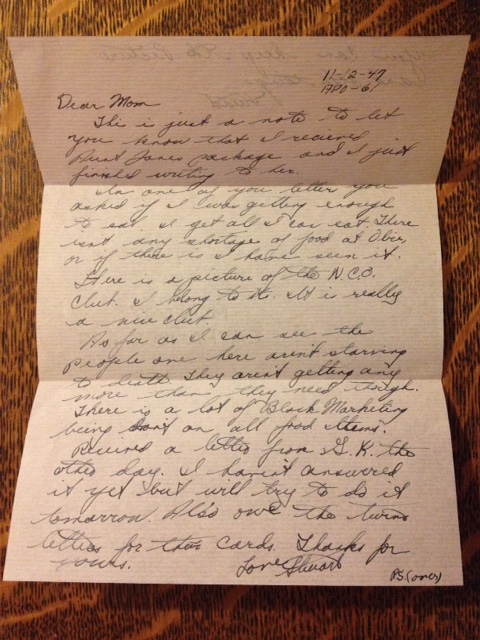 11-12-47
APO-61
Dear Mom
This is just a note to let
you know that I recieved
Aunt Janes package and I just
finished writing to her.
In one of you letter you
asked if I was getting enough
to eat. I get all I can eat. There
isnt any shortage of food at
or if there is I havn seen it.
There is a picture of the N.C.O.
Club. I belong to it. It is really
a nice club.
As far as I can see the
people over here arent starving
to death. They arent getting any
more than they need though.
There is a lot of Black Marketing
being on all food items.
Recieved a letter from G.K. the
other day. I havnt answered
it yet but will try to do it
tomorrow. Also owe the twins
letters for their cards. Thanks for
yours.
Love Stuart
P.S. (over)